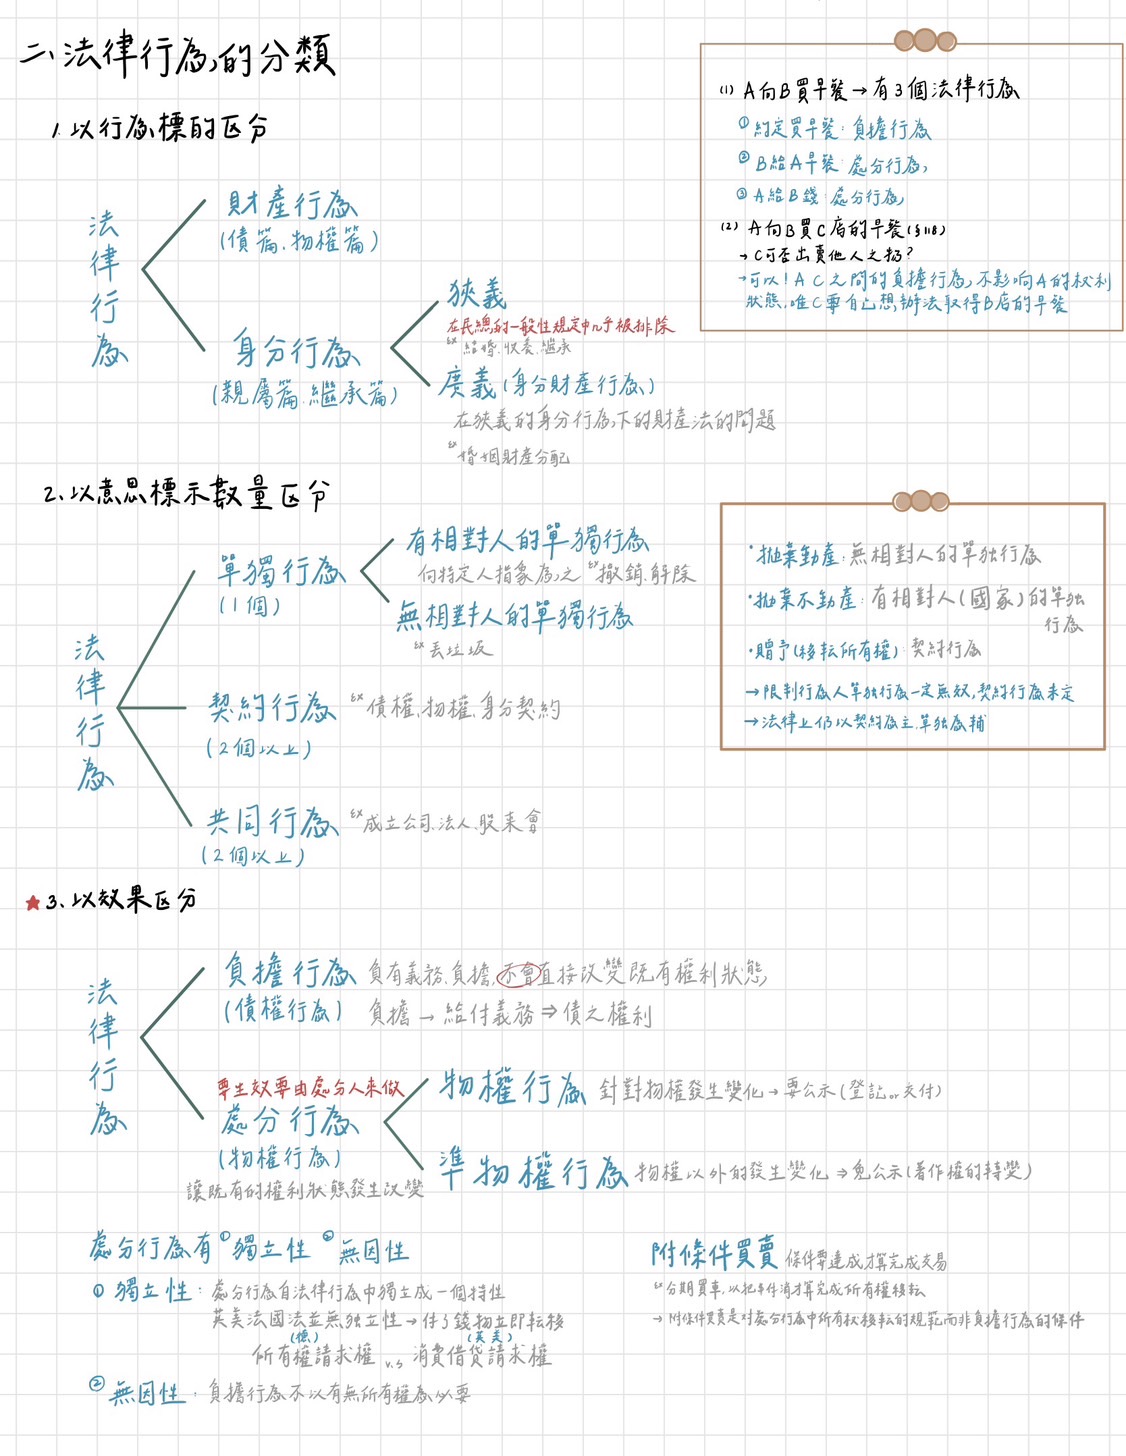 二、法律行為的分類
1. 以行為標的区分
法律行為
財產行為
(債篇、物權篇)
身分行為
(親屬篇、繼承篇)
狹義
在民總的一般性規定中几乎被排除
ex 結婚、收養、繼承
廣義(身分財產行為)
在狹義的身分行為下的財產法的問題
ex 婚姻財產分配
(1) A向B買早餐→有3個法律行為
① 約定買早餐:負擔行為
② B給A早餐:處分行為
③ A給B錢:處分行為
(2) A向B買C店的早餐(§118)
→ C可否出賣他人之物?
→可以!AC之間的負擔行為,不影响A的权利
狀態,唯C要自己想辦法取得B店的早餐
2、以意思標示數量区分
法律行為
單獨行為
(1個)
有相對人的單獨行為
向特定人指象為之 ex撤銷、解除
無相對人的單獨行為
ex 丟垃圾
契約行為 ex 債權、物權、身分契約
(2個以上)
共同行為 ex 成立公司、法人、股東會
(2個以上)
・拋棄動產:無相對人的單独行為
・拋棄不動產:有相對人(國家)的單独
行為
・贈予(移転所有權):契約行為
→限制行為人單独行為一定無効,契約行為未定
→法律上仍以契約為主,單独為輔
★3、以效果区分
法律行為
負擔行為 負有義務、負擔,不會直接改變既有權利狀態
(債權行為) 負擔→給付義務⇒債之權利
要生效要由處分人來做
處分行為
(物權行為)
讓既有的權利狀態發生改變
物權行為 針對物權發生變化→要公示(登記or交付)
準物權行為 物權以外的發生變化→免公示(著作權的轉變)
處分行為有①獨立性 ②無因性
① 獨立性:處分行為自法律行為中獨立成一個特性
英美法國法並無独立性→付了錢物立即転移
(德) (英美)
所有權請求權 v.s 消費借貸請求權
② 無因性:負擔行為不以有無所有權為必要
附條件買賣 條件要達成才算完成交易
ex 分期買車,以把卡付清才算完成所有權移転
→ 附條件買賣是对處分行為中所有权移転的規範而非負擔行為的條件